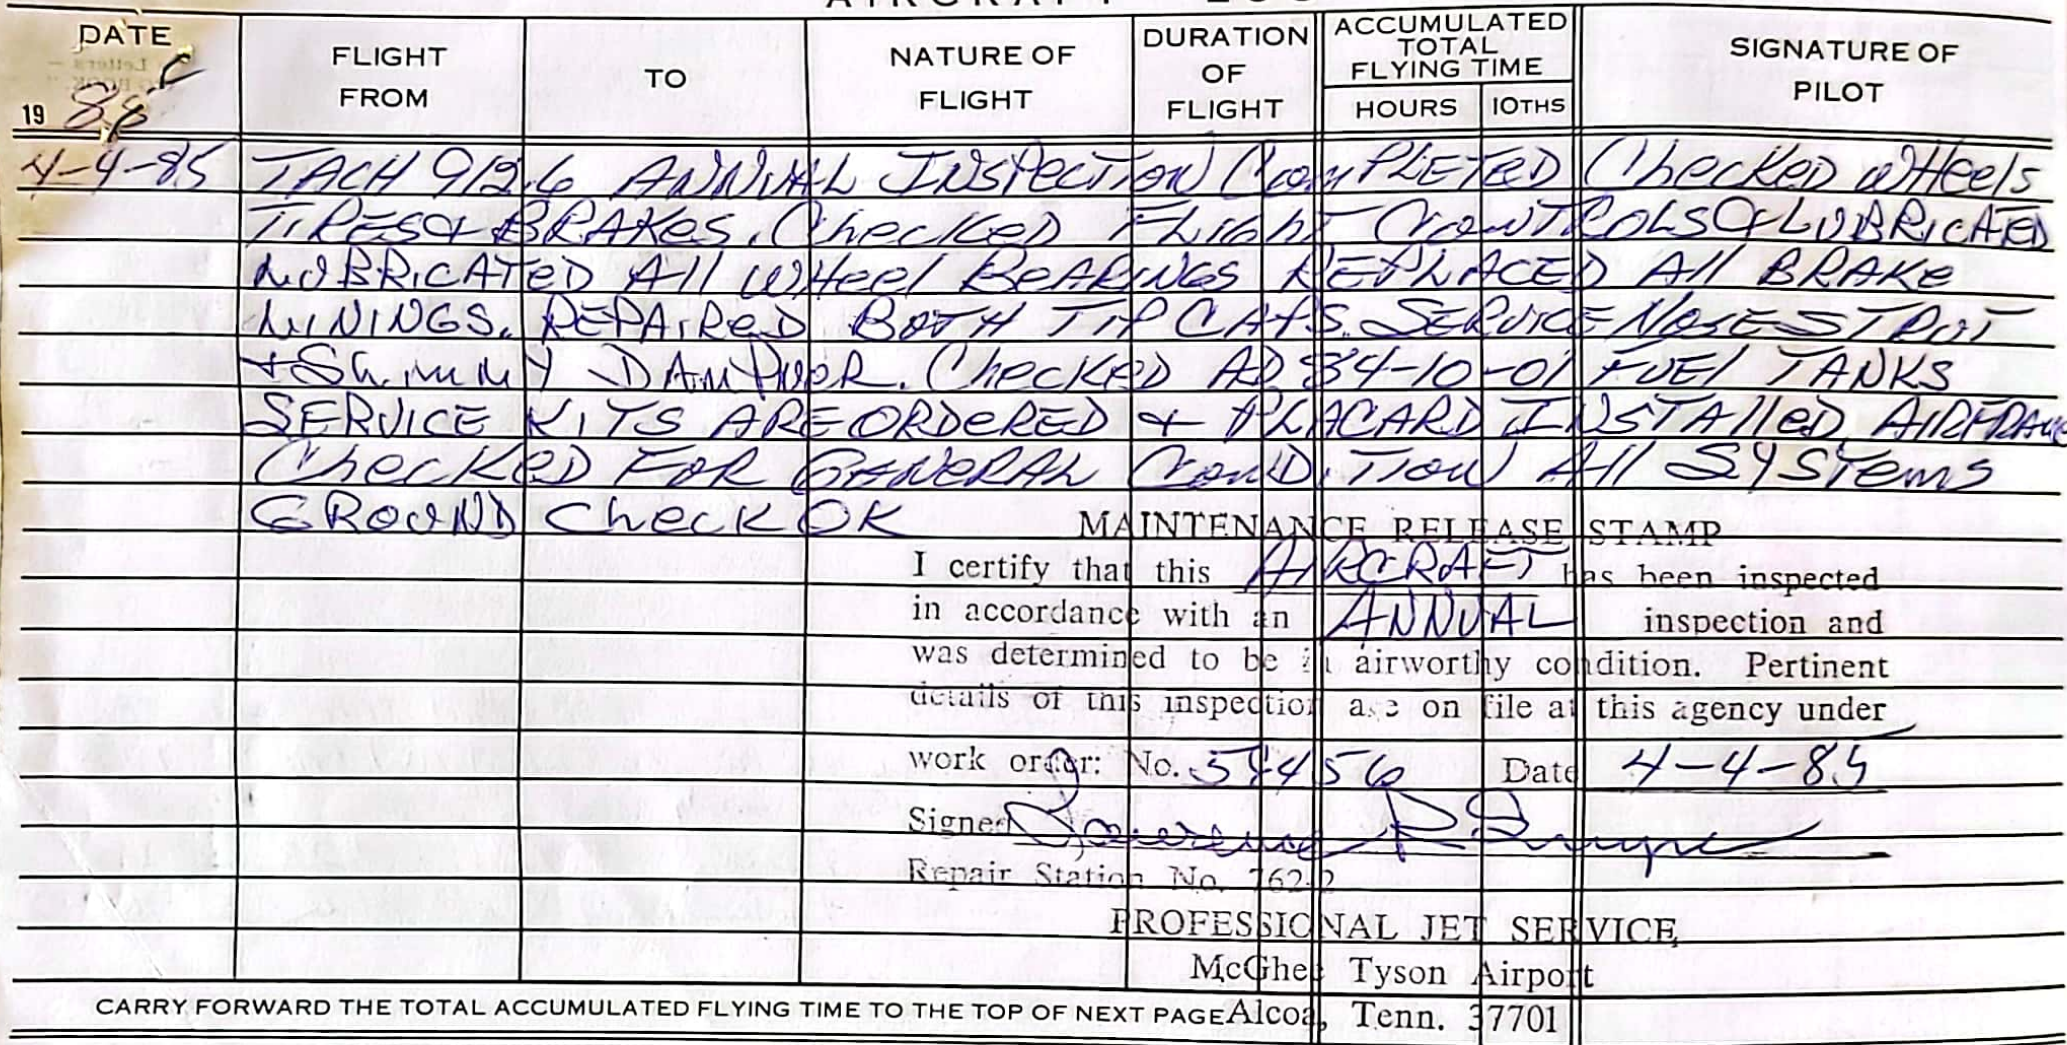 AIRCRAFT LOG
DATE
FLIGHT FROM
TO
NATURE OF FLIGHT
DURATION OF FLIGHT
ACCUMULATED TOTAL FLYING TIME
HOURS 10THS
SIGNATURE OF PILOT
19
4-4-85 TACH 912.6 ANNUAL INSPECTION COMPLETED CHECKED WHEELS
TIRES & BRAKES. CHECKED FLIGHT CONTROLS & LUBRICATED
LUBRICATED All WHEEL BEARINGS REPLACED All BRAKE
LININGS. REPAIRED BOTH TIP CAPS. SERVICE NOSE STRUT
+ Shimmy DAMPNOR. CHECKED AD 84-10-01 FUEL TANKS
SERVICE KITS ARE ORDERED + PLACARD INSTAlled. AIRFRAME
CHECKED FOR GANERAL CONDITION All SYSTEMS
GROUND CHECK OK
MAINTENANCE RELEASE STAMP
I certify that this AIRCRAFT has been inspected
in accordance with an ANNUAL inspection and
was determined to be in airworthy condition. Pertinent
details of this inspection are on file at this agency under
work order: No. 54456 Date 4-4-85
Signed
Repair Station No. 762-2
PROFESSIONAL JET SERVICE,
McGhee Tyson Airport
CARRY FORWARD THE TOTAL ACCUMULATED FLYING TIME TO THE TOP OF NEXT PAGE Alcoa, Tenn. 37701